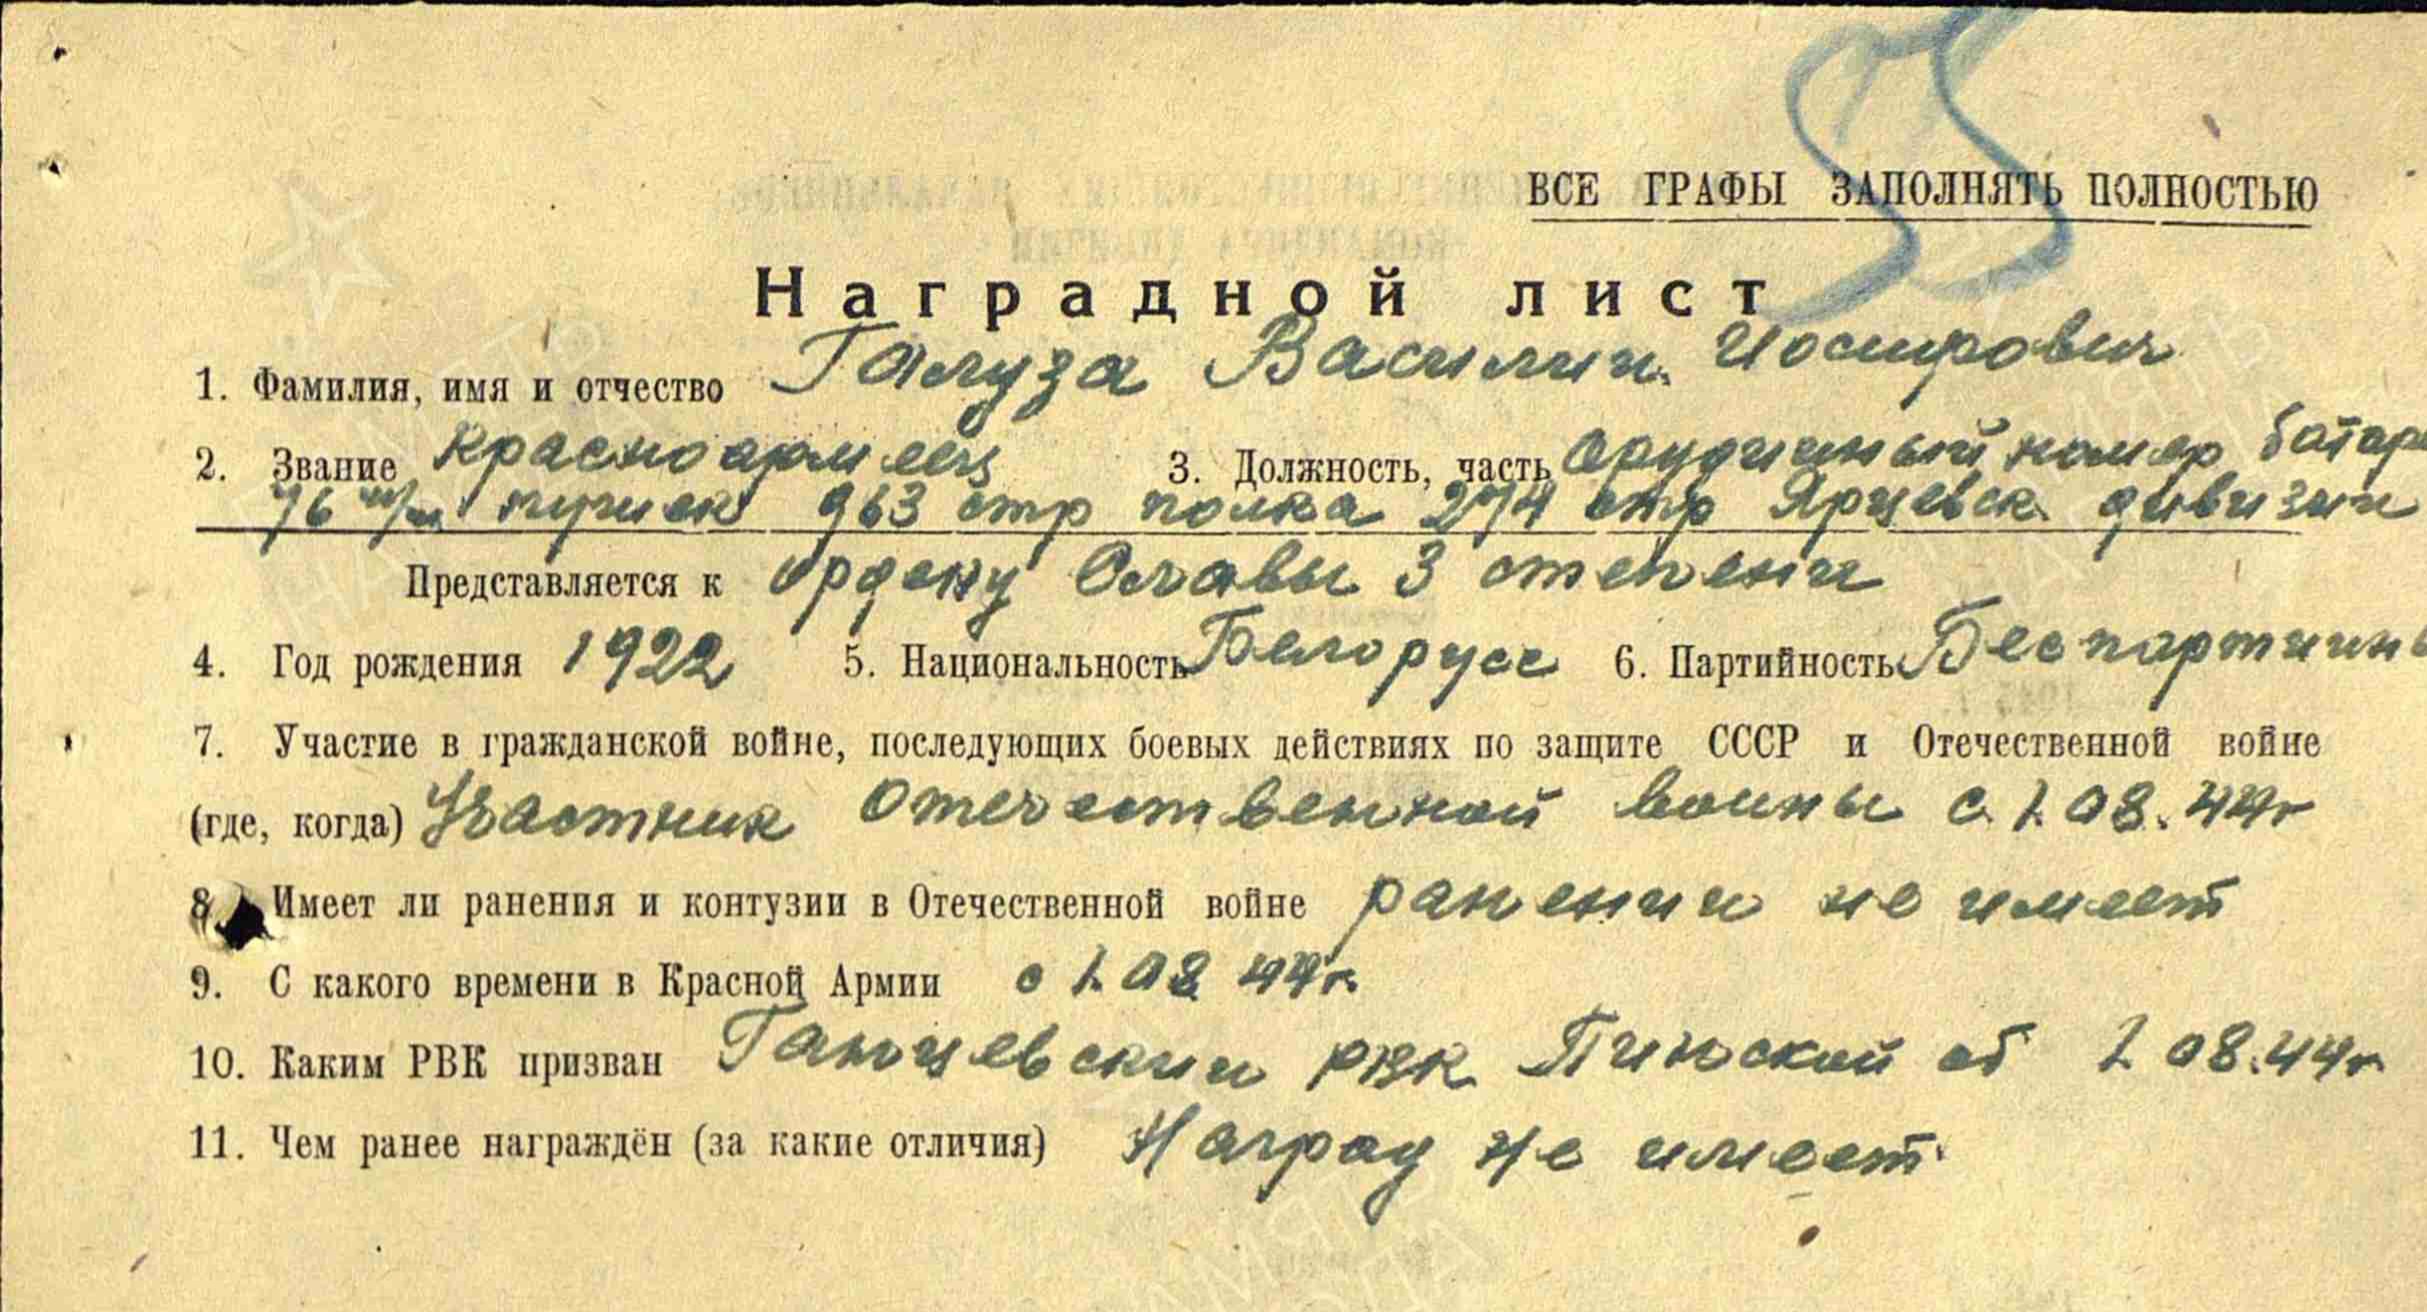 55
ВСЕ ГРАФЫ ЗАПОЛНЯТЬ ПОЛНОСТЬЮ
Наградной лист
1. Фамилия, имя и отчество Галуза Василий Иосифович
2. Звание красноармеец 3. Должность, часть орудийный номер батаре
76 м/м пушек 963 стр полка 274 стр Ярцевск. дивизии
Представляется к ордену Славы 3 степени
4. Год рождения 1922 5. Национальность Белорусс 6. Партийность Беспартийн
7. Участие в гражданской войне, последующих боевых действиях по защите СССР и Отечественной войне
(где, когда) Участник Отечественной войны с 1.08.44г
8. Имеет ли ранения и контузии в Отечественной войне ранении не имеет
9. С какого времени в Красной Армии с 1.08.44г.
10. Каким РВК призван Ганцевский РВК Пинской об 1.08.44г.
11. Чем ранее награждён (за какие отличия) Наград не имеет.